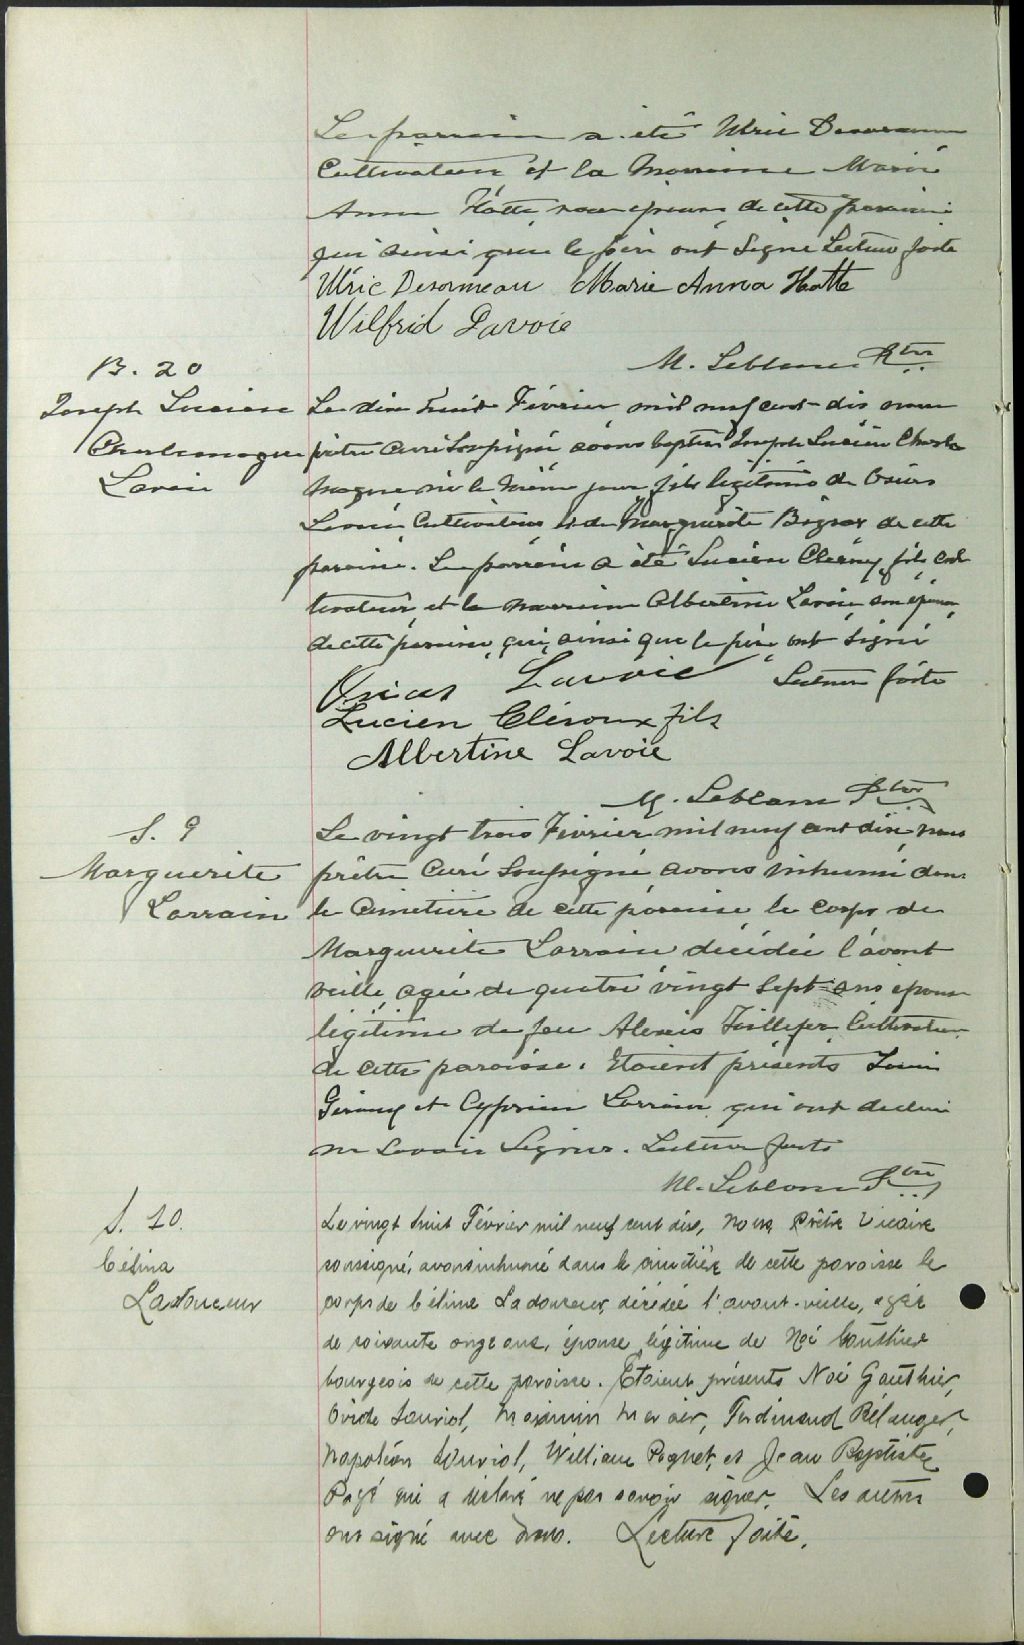 Le parrain a été Ulric Desormeau
Cultivateur et la Marraine Marie
Anna Hotte, son épouse, de cette paroisse
qui ainsi que le père ont Signé Lecture faite
Ulric Desormeau Marie Anna Hotte
Wilfrid Lavoie
M. Leblanc Ptre
B. 20
Joseph Lucien
Charlemagne
Lavoie
Le dix huit Février mil neuf cent dix nous
prêtre Curé Soussigné avons baptisé Joseph Lucien Charle
magne né le même jour fils légitime de Osias
Lavoie Cultivateur et de Marguerite de cette
paroisse. Le parrain a été Lucien Cléroux, fils, cul
tivateur, et la marraine Albertine Lavoie son épouse
de cette paroisse, qui, ainsi que le père ont signé
Osias Lavoie Lecture faite
Lucien Cléroux fils
Albertine Lavoie
M. Leblanc Ptre
S. 9
Marguerite
Lorrain
Le vingt trois Février mil neuf cent dix, nous
prêtre Curé Soussigné avons inhumé dans
le Cimetière de cette paroisse le corps de
Marguerite Lorrain décédée l'avant
veille, agée de quatre vingt Sept ans épouse
légitime de feu Alexis Taillefer Cultivateur
de cette paroisse. Etaient présents Louis
Giroux et Cyprien Lorrain qui ont déclaré
ne Savoir Signer. Lecture faite
M. Leblanc Ptre
S. 10.
Célina
Ladouceur
Le vingt huit Février mil neuf cent dix, nous Prêtre Vicaire
soussigné, avons inhumé dans le cimetière de cette paroisse le
corps de Célina Ladouceur, décédée l'avant-veille, agée
de soixante onze ans, épouse légitime de Noé Gauthier
bourgeois de cette paroisse. Etaient présents Noé Gauthier,
Ovide Lauriol, Maximin Mercier, Ferdinand Bélanger,
Napoléon Lauriol, William Paquet, et Jean Baptiste
Pagé qui a déclaré ne pas savoir signer. Les autres
ont signé avec nous. Lecture faite.